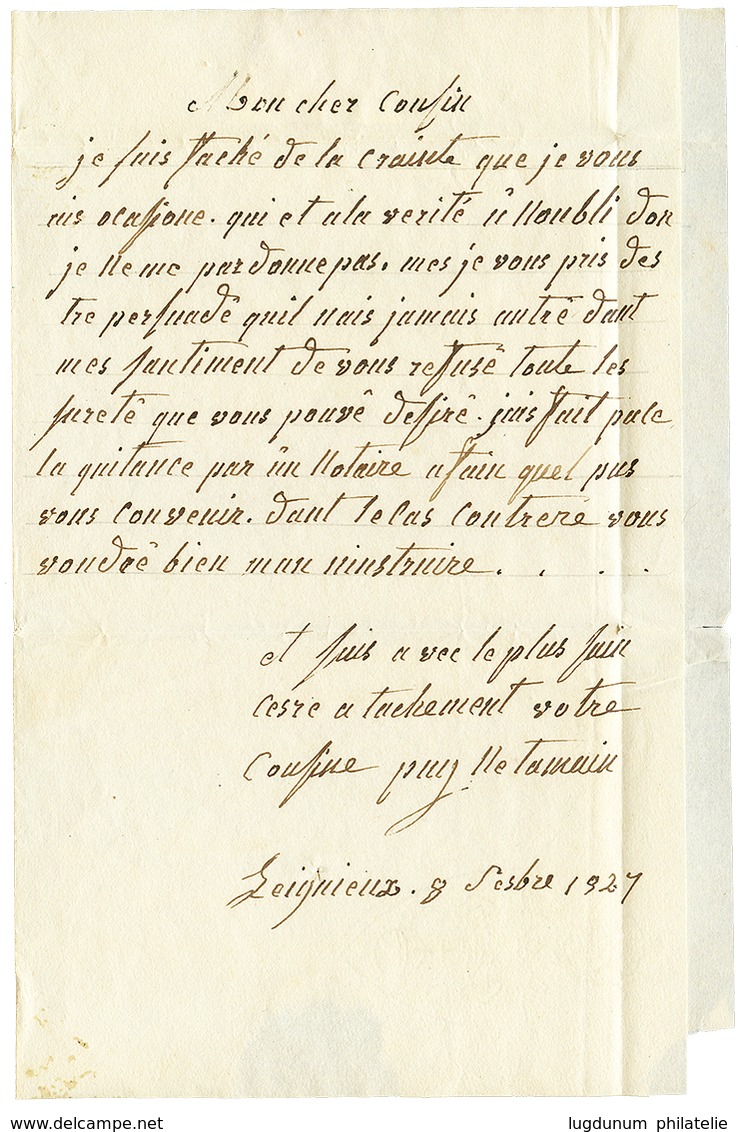 Mon cher Cousin
je suis faché de la crainte que je vous
ais ocasione. qui et ala verité û noubli don
je ne me pardonne pas. mes je vous pris des
tre persuadê quil nais jamais autrê dant
mes santiment de vous refusê toute les
suretê que vous pouvê desirê. jais fait pale
la quitance par ûn Notaire afain quel pus
vous convenir. dant le cas contrere vous
voudrê bien man ninstruire. . . .
et suis avec le plus sain
cesre atachement votre
Cousine puy Netamain
Leignieux. 8 1827
www.delcampe.net
lugdunum philatelie